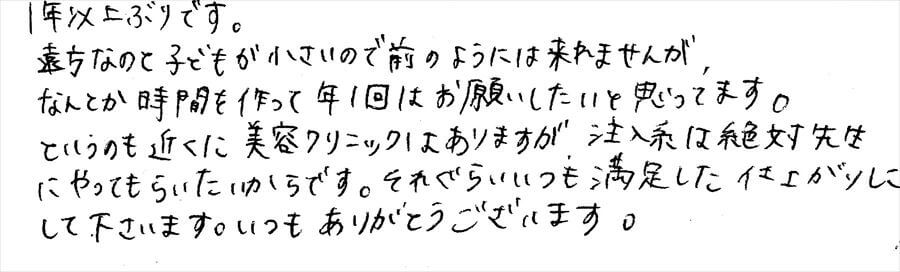 1年以上ぶりです。
遠方なのと子どもが小さいので前のようには来れませんが、
なんとか時間を作って年1回はお願いしたいと思ってます。
というのも近くに美容クリニックはありますが、注入系は絶対先生
にやってもらいたいからです。それぐらいいつも満足した仕上がりに
して下さいます。いつもありがとうございます。